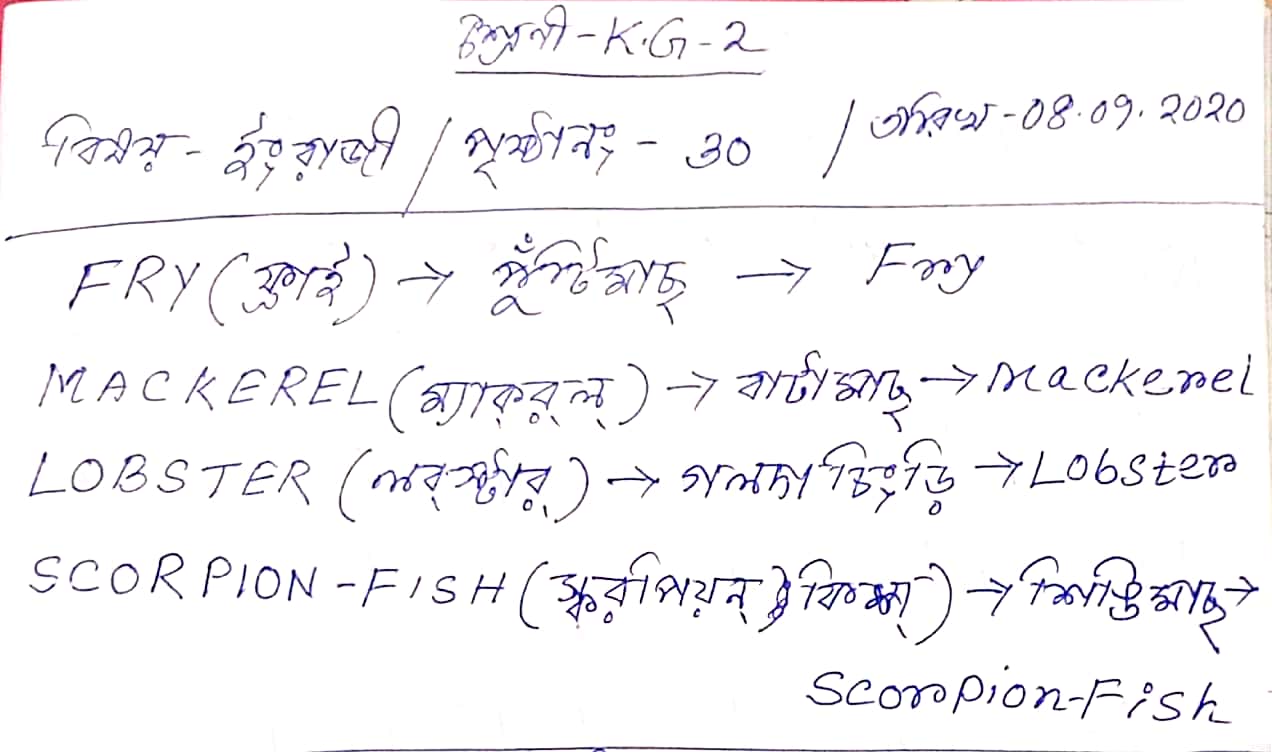 শ্রেণী - K.G - 2
বিষয় - ইংরাজী / পৃষ্ঠা নং - 30 / তারিখ - 08.09.2020
FRY (ফ্রাই) → পুঁটিমাছ → Fry
MACKEREL (ম্যাক্‌র্‌ল্) → বাটামাছ → Mackerel
LOBSTER (লব্‌স্টার্) → গলদা চিংড়ি → Lobster
SCORPION-FISH (স্করপিয়ন্ ফিস্) → শিঙিমাছ →
Scorpion-Fish